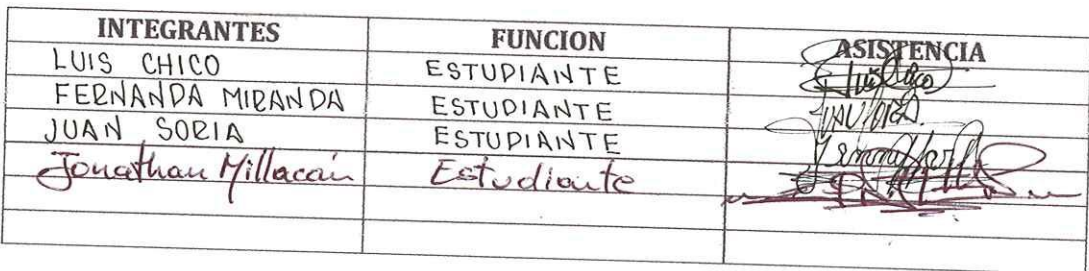 INTEGRANTES FUNCION ASISTENCIA
LUIS CHICO ESTUDIANTE
FERNANDA MIRANDA ESTUDIANTE
JUAN SORIA ESTUDIANTE
Jonathan Millacán Estudiante